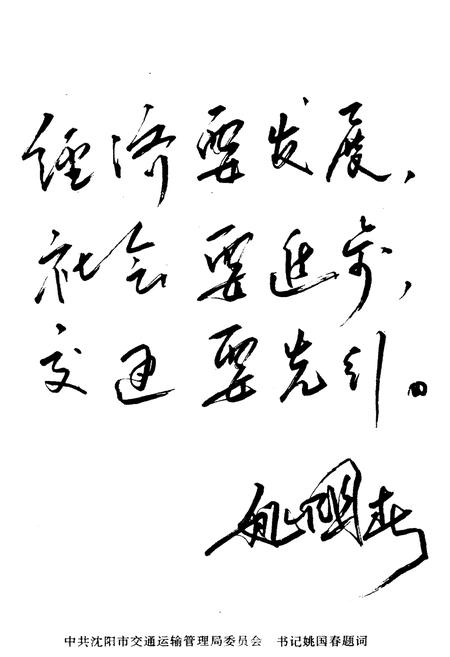 經济要发展,
社会要进步,
交通要先行。
姚国春
中共沈阳市交通运输管理局委员会 书记姚国春题词